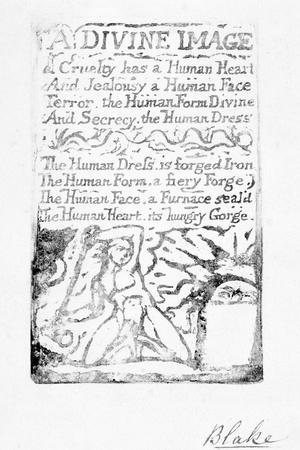 A DIVINE IMAGE
Cruelty has a Human Heart
And Jealousy a Human Face
Terror, the Human Form Divine
And Secrecy, the Human Dress
The Human Dress, is forged Iron
The Human Form, a fiery Forge.
The Human Face, a Furnace seal'd
The Human Heart, its hungry Gorge.
Blake